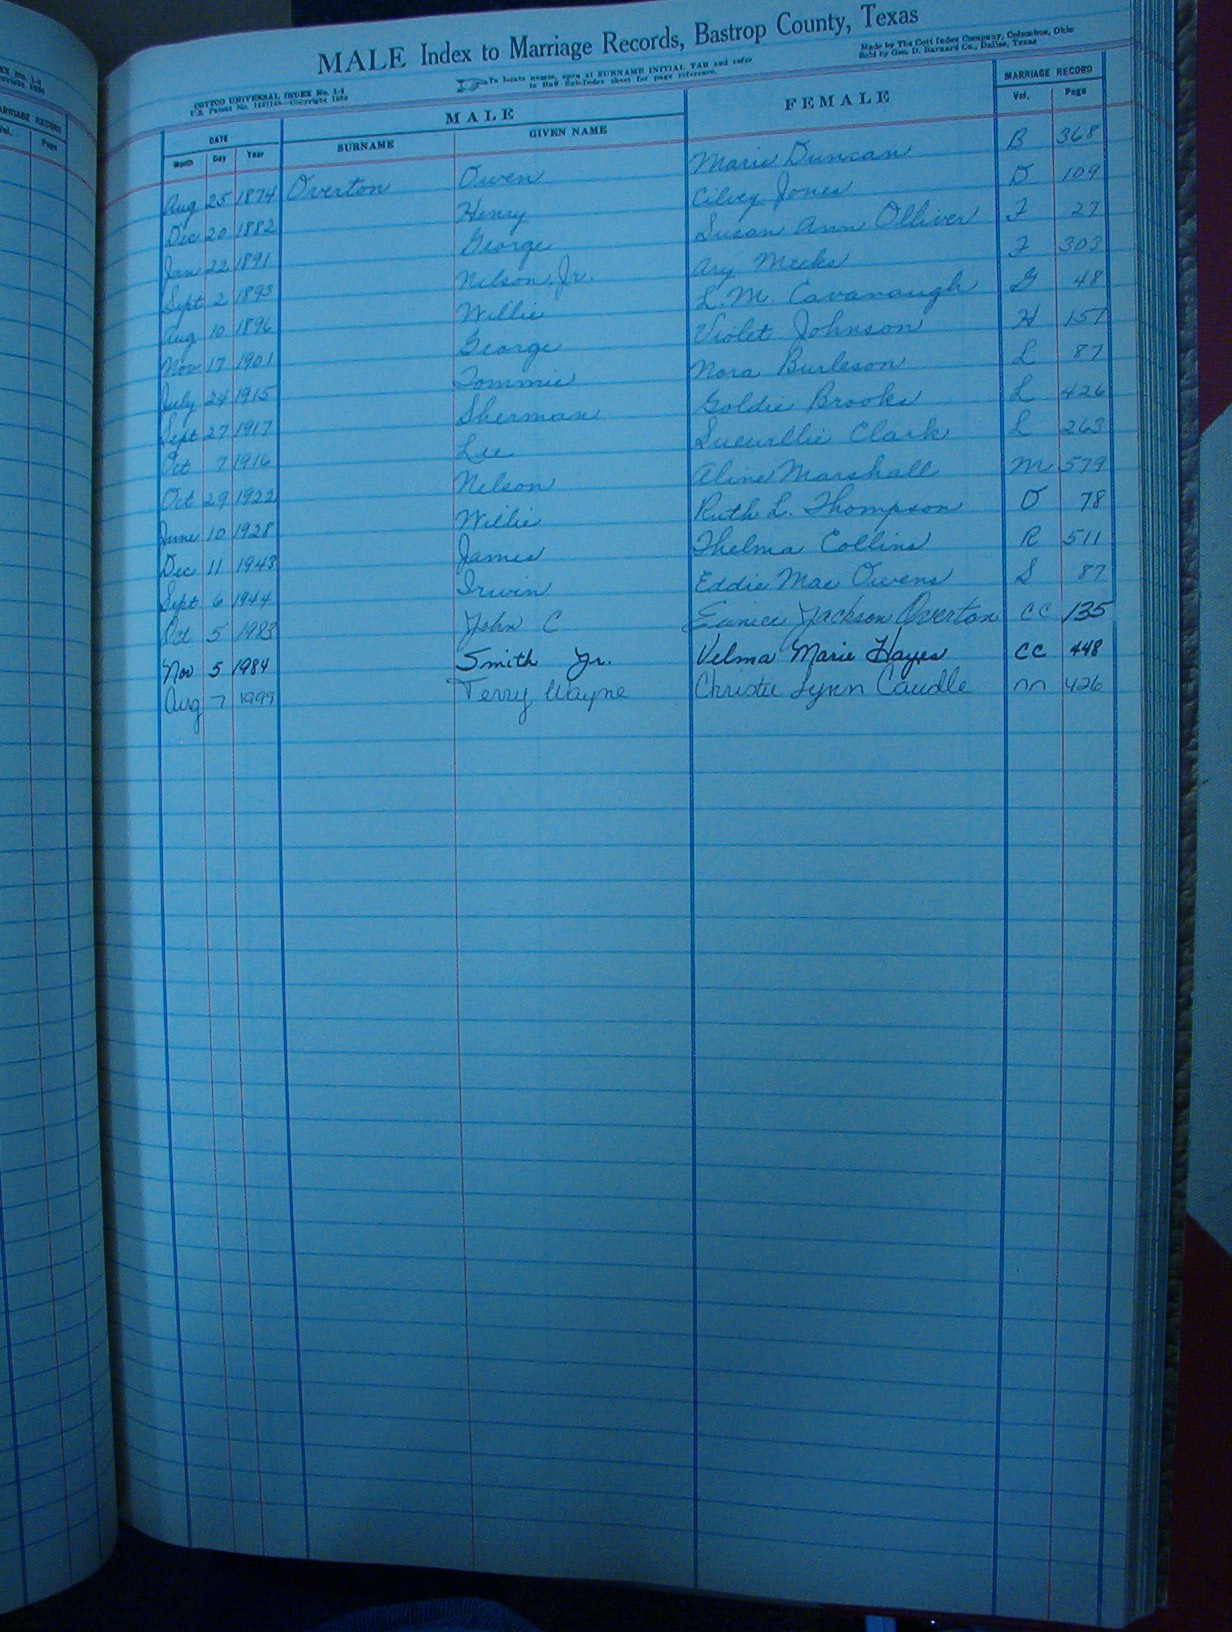 EX No. 1-4
MARRIAGE RECORD
Vol. Page
MALE Index to Marriage Records, Bastrop County, Texas
COTTCO UNIVERSAL INDEX No. 1-4
To locate names, open at SURNAME INITIAL TAB and refer
Made by The Cott Index Company, Columbus, Ohio
Sold by Geo. D. Barnard Co., Dallas, Texas
MALE FEMALE MARRIAGE RECORD
DATE SURNAME GIVEN NAME Vol. Page
Month Day Year
Aug 25 1874 Overton Owen Marie Duncan B 368
Dec 20 1882 Henry Cilvey Jones D 109
Jan 22 1891 George Susan Ann Olliver F 27
Sept 2 1893 Nilson, Jr. Ary Meeks F 303
Aug 10 1896 Willie L. M. Cavanaugh G 48
Nov 17 1901 George Violet Johnson H 157
July 24 1915 Tommie Nora Burleson L 87
Sept 27 1917 Sherman Goldie Brooks L 426
Oct 7 1916 Lee Clark L 263
Oct 29 1922 Nelson Aline Marshall M 579
June 10 1928 Willie Ruth L. Thompson O 78
Dec 11 1943 James Thelma Collins R 511
Sept 6 1944 Irwin Eddie Mae Owens S 87
Oct 5 1983 John C Eunice Jackson Overton CC 135
Nov 5 1984 Smith Jr. Velma Marie Hayes CC 448
Aug 7 1999 Terry Wayne Christie Lynn Caudle nn 426